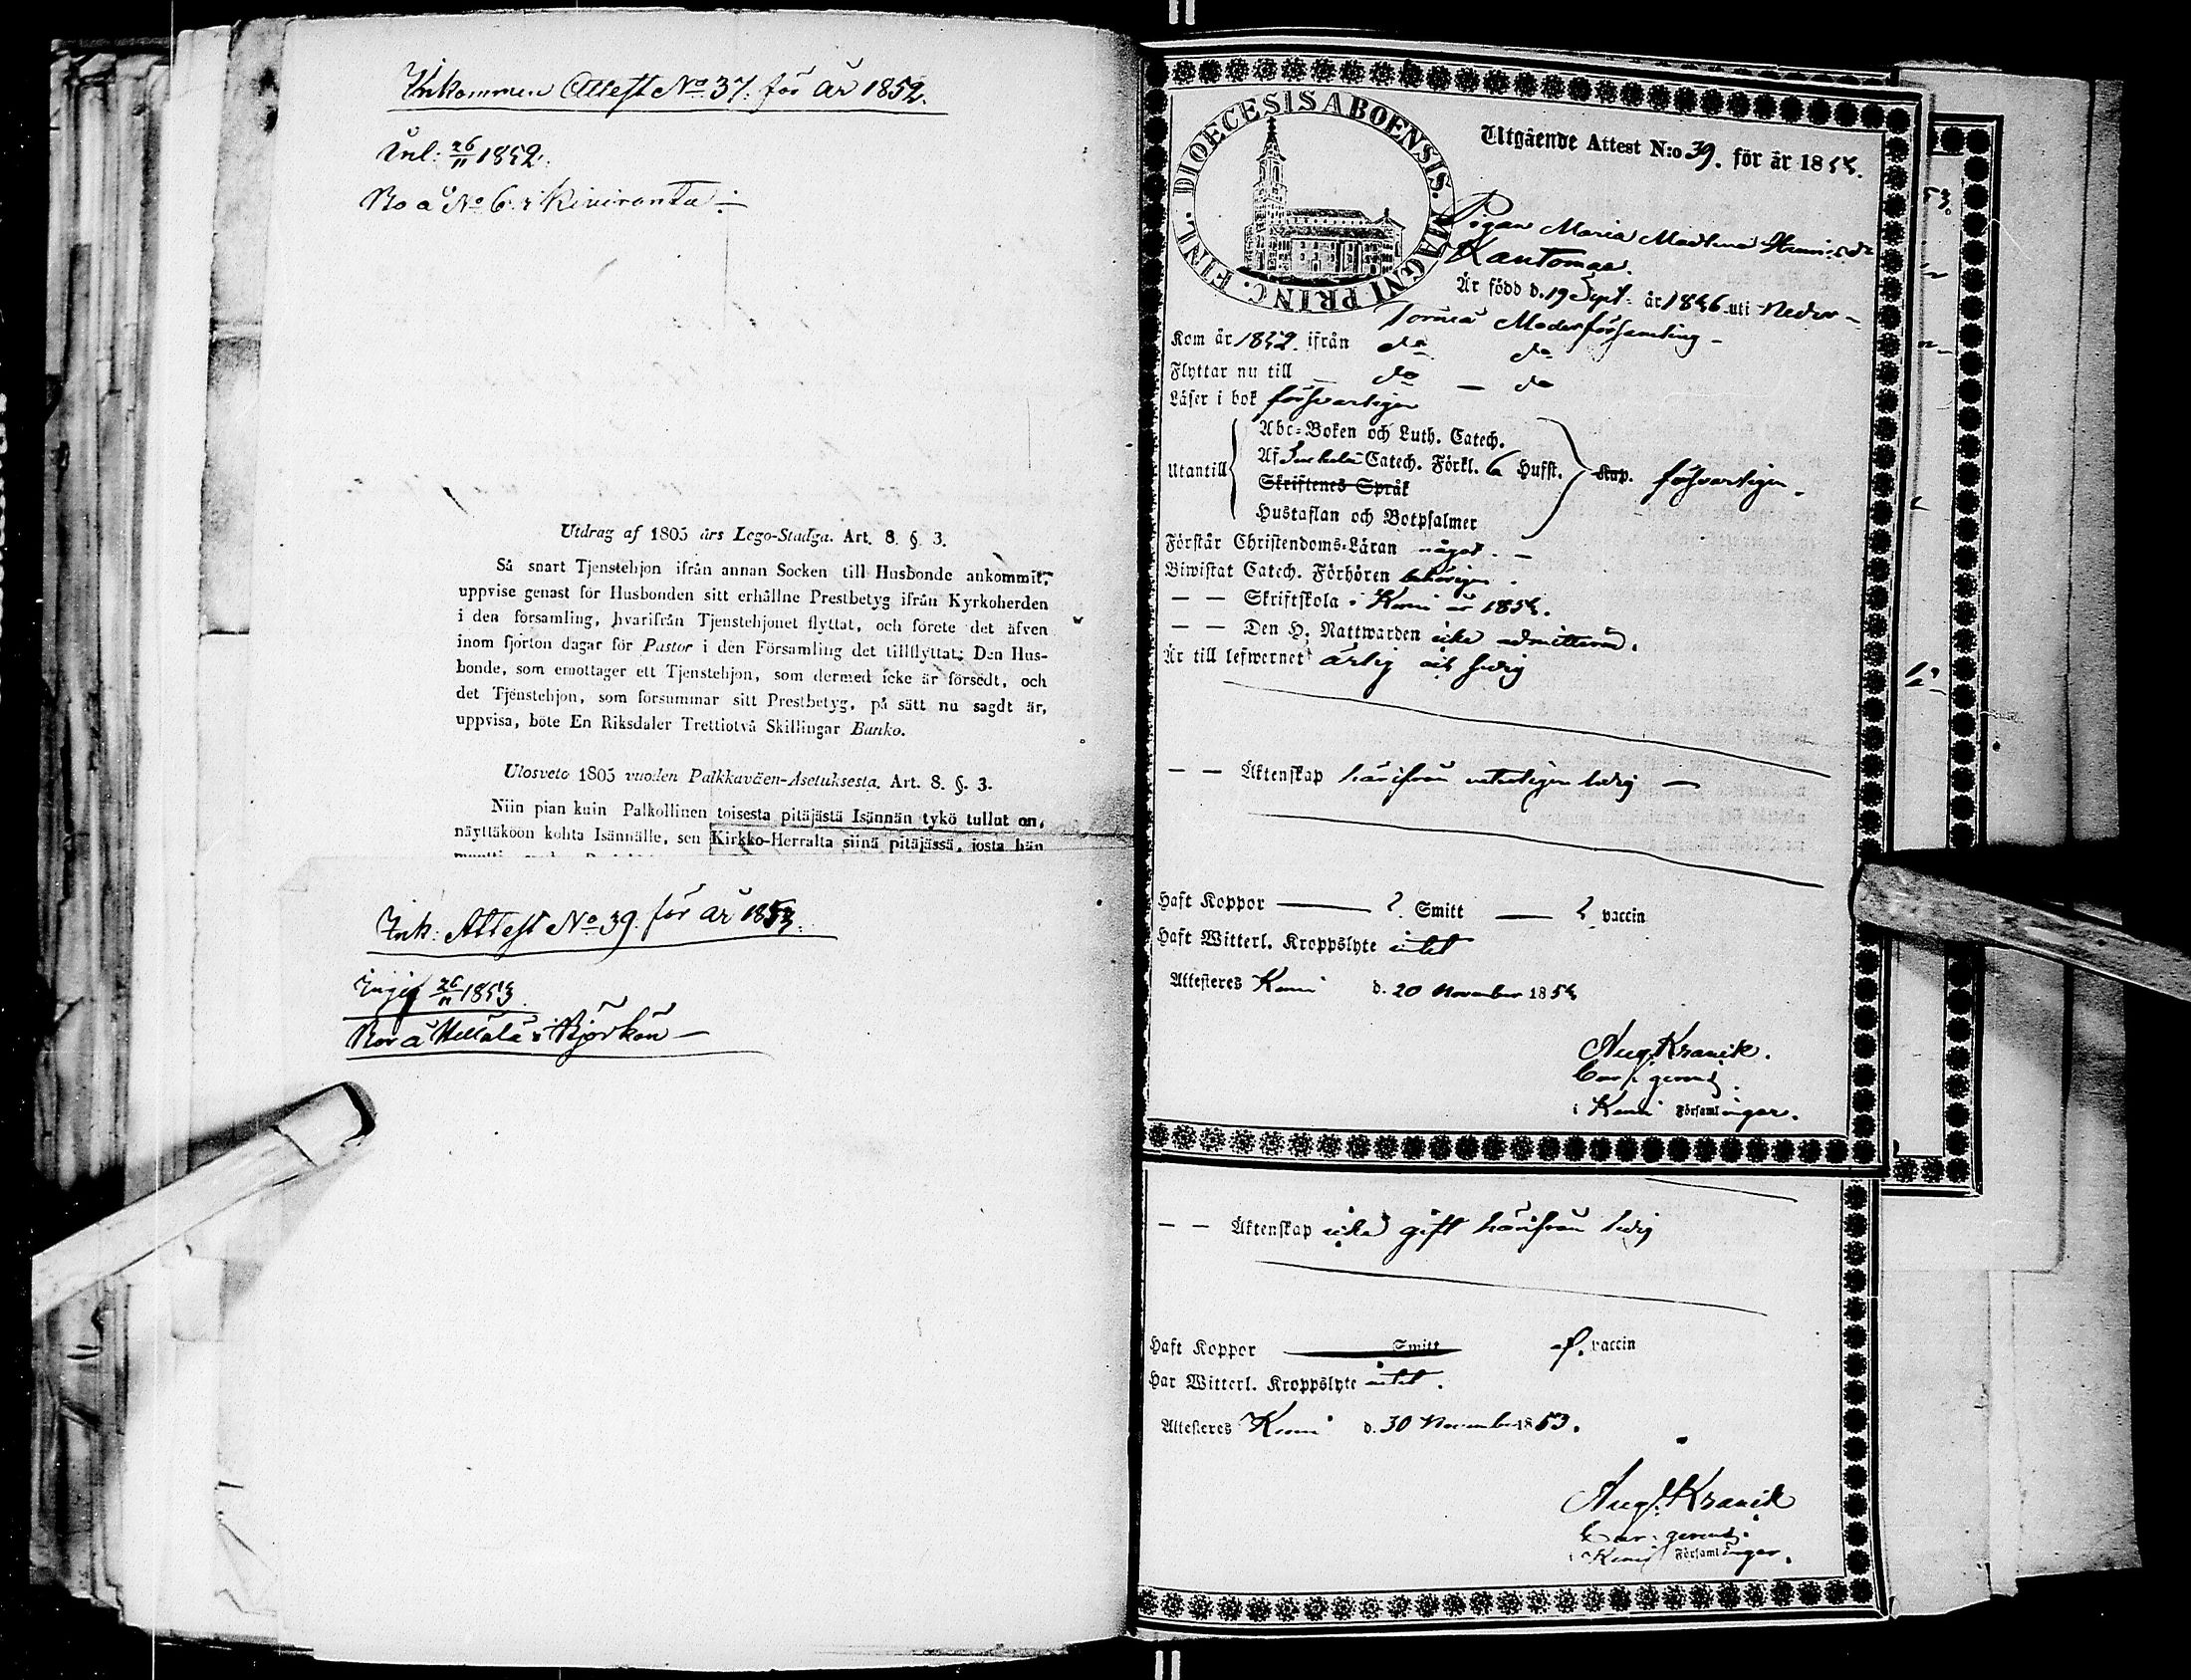 Inkommen Attest No 37. för år 1852.
Inl: 26/11 1852.
Bo å No 6 i Kiviranta.
Utdrag af 1805 års Lego-Stadga. Art. 8. §. 3.
Så snart Tjenstehjon ifrån annan Socken till Husbonde ankommit,
uppvise genast för Husbonden sitt erhållne Prestbetyg ifrån Kyrkoherden
i den församling, hvarifrån Tjenstehjonet flyttat, och förete det äfven
inom fjorton dagar för Pastor i den Församling det tillflyttat; Den Hus-
bonde, som emottager ett Tjenstehjon, som dermed icke är försedt, och
det Tjenstehjon, som försummar sitt Prestbetyg, på sätt nu sagdt är,
uppvisa, böte En Riksdaler Trettiotvå Skillingar Banko.
Ulosveto 1805 vuoden Palkkaväen-Asetuksesta. Art. 8. §. 3.
Niin pian kuin Palkollinen toisesta pitäjästä Isännän tykö tullut on,
näyttäköön kohta Isännälle, sen Kirkko-Herralta siinä pitäjässä, josta hän
Ink: Attest No 39. för år 1853.
Ingif 26/11 1853
Bor å i Björkön
DIOECESIS ABOENSIS. MAGNI PRINC. FINL.
Utgående Attest N:o 39. för år 18
Pigan Maria
Kantomaa.
Är född d. 19 Sept. år 18 uti Neder-
Torneå Moderförsamling -
Kom år 1852 ifrån do do
Flyttar nu till do do
Läser i bok försvarligen
Abc-Boken och Luth. Catech.
Utantill Af Catech. Förkl. 6 Hufst. Kap. försvarligen.
Skriftenes Språk
Hustaflan och Botpsalmer
Förstår Christendoms-Läran något.
Biwistat Catech. Förhören behörigen.
— — Skriftskola i Kemi år
— — Den H. Nattwarden icke admitterad.
Är till lefwernet ärlig och sedig
— — Äktenskap härifrån veterligen ledig —
Haft Koppor ? Smitt ? vaccin
Haft Witterl. Kroppslyte intet
Attesteras Kemi d. 20 November 18
Aug. Kranck.
i Kemi Församlingar.
— — Äktenskap icke gift härifrån ledig
Haft Koppor Smitt vaccin
Har Witterl. Kroppslyte intet.
Attesteres Kemi d. 30 November 1853.
Aug. Kranck
i Kemi Församlingar.